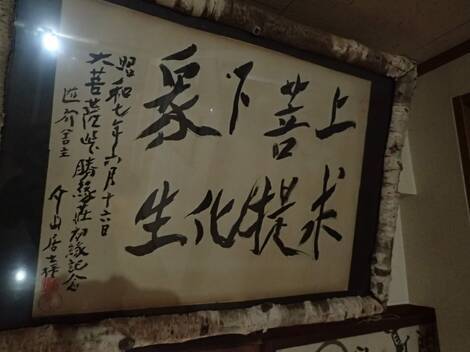 上求
菩提
下化
衆生
昭和七年六月十六日
大菩薩 勝縁荘 記念
舎主
介山居士